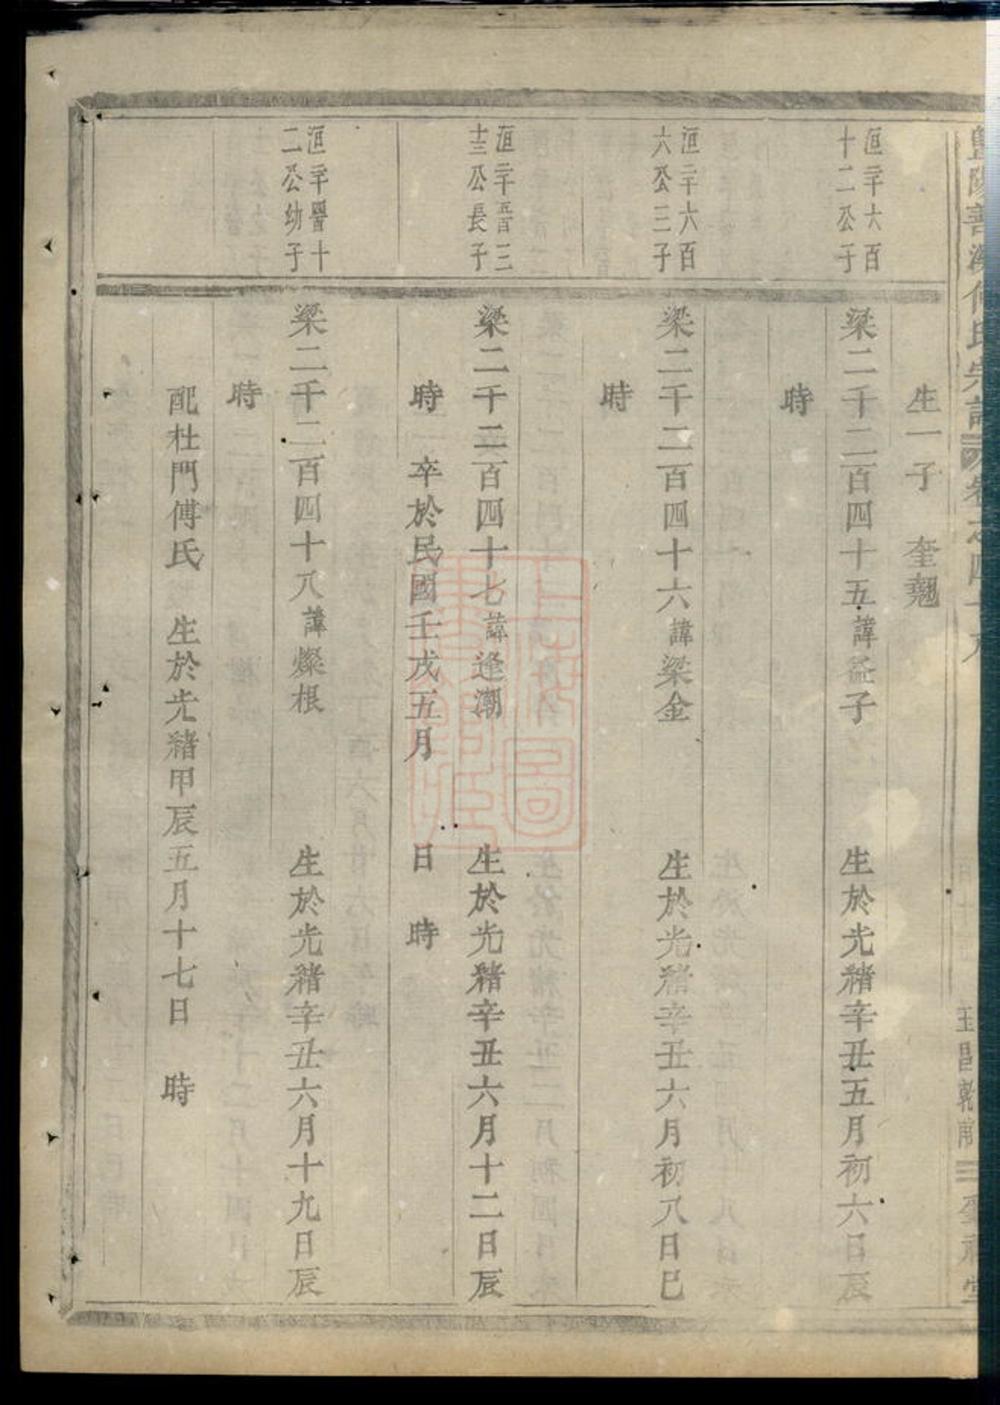 生一子 奎翹
洹三千六百
十二公子
梁二千二百四十五諱益子 生於光緒辛丑五月初六日辰
時
洹三千六百
六公三子
梁二千二百四十六諱梁金 生於光緒辛丑六月初八日巳
時
洹三千三
十三公長子
梁二千二百四十七諱逢潮 生於光緒辛丑六月十二日辰
時 卒於民國壬戌五月 日 時
洹三千十
二公幼子
梁二千二百四十八諱燦根 生於光緒辛丑六月十九日辰
時
配杜門傅氏 生於光緒甲辰五月十七日 時